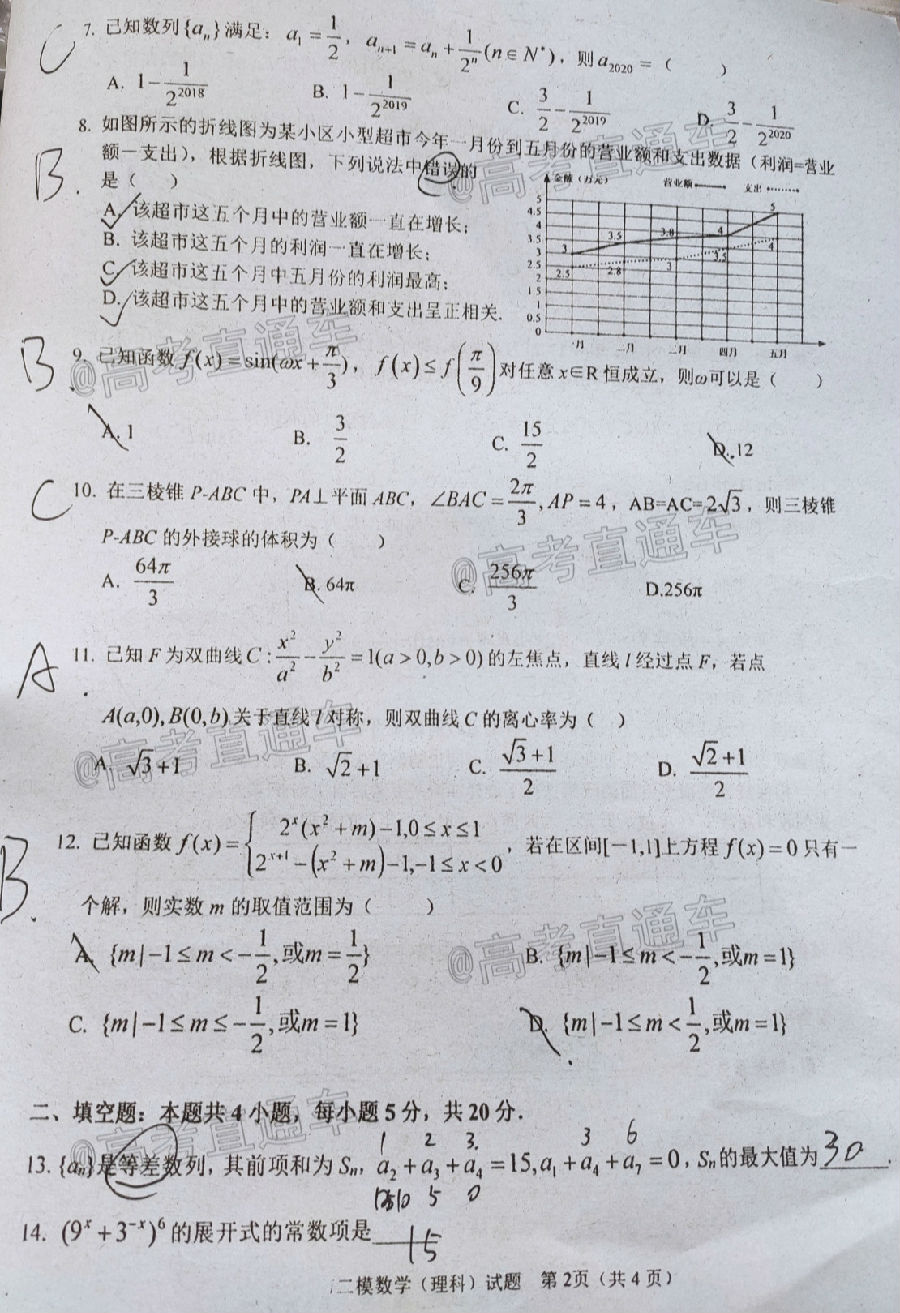 C 7. 已知数列{aₙ}满足：a₁ = 1/2，aₙ₊₁ = aₙ + 1/2ⁿ (n∈N*)，则a₂₀₂₀ = (    )
A. 1 - 1/2²⁰¹⁸    B. 1 - 1/2²⁰¹⁹    C. 3/2 - 1/2²⁰¹⁹    D. 3/2 - 1/2²⁰²⁰
8. 如图所示的折线图为某小区小型超市今年一月份到五月份的营业额和支出数据（利润=营业
B. 额－支出），根据折线图，下列说法中错误的
是（    ）
A. 该超市这五个月中的营业额一直在增长；
B. 该超市这五个月的利润一直在增长；
C. 该超市这五个月中五月份的利润最高；
D. 该超市这五个月中的营业额和支出呈正相关.
金额（万元） 营业额 支出
5
4.5
4
3.5
3
2.5
2
1.5
1
0.5
0
3 3.5 3.8 4 5
2.5 2.8 3 3.5 4
一月 二月 三月 四月 五月
B. 9. 已知函数 f(x) = sin(ωx + π/3)，f(x) ≤ f(π/9)对任意 x∈R 恒成立，则ω可以是（    ）
A. 1    B. 3/2    C. 15/2    D. 12
C 10. 在三棱锥 P-ABC 中，PA⊥平面 ABC，∠BAC = 2π/3, AP = 4，AB=AC=2√3，则三棱锥
P-ABC 的外接球的体积为（    ）
A. 64π/3    B. 64π    C. 256π/3    D.256π
A. 11. 已知 F 为双曲线 C : x²/a² - y²/b² = 1(a > 0, b > 0) 的左焦点，直线 l 经过点 F，若点
A(a,0), B(0,b) 关于直线 l 对称，则双曲线 C 的离心率为（   ）
A. √3+1    B. √2+1    C. (√3+1)/2    D. (√2+1)/2
B. 12. 已知函数 f(x) = { 2ˣ(x² + m) - 1, 0 ≤ x ≤ 1
2ˣ⁺¹ - (x² + m) - 1, -1 ≤ x < 0 ，若在区间[-1,1]上方程 f(x) = 0 只有一
个解，则实数 m 的取值范围为（    ）
A. {m | -1 ≤ m < -1/2, 或m = 1/2}    B. {m | -1 ≤ m < -1/2, 或m = 1}
C. {m | -1 ≤ m ≤ -1/2, 或m = 1}    D. {m | -1 ≤ m < 1/2, 或m = 1}
二、填空题：本题共 4 小题，每小题 5 分，共 20 分.
1 2 3. 3 6
13. {aₙ}是等差数列，其前项和为 Sₙ, a₂ + a₃ + a₄ = 15, a₁ + a₄ + a₇ = 0，Sₙ的最大值为 30 .
10 5 0
14. (9ˣ + 3⁻ˣ)⁶ 的展开式的常数项是 15
二模数学（理科）试题 第 2页（共 4 页）
@高考直通车
@高考直通车
@高考直通车
@高考直通车
@高考直通车
@高考直通车